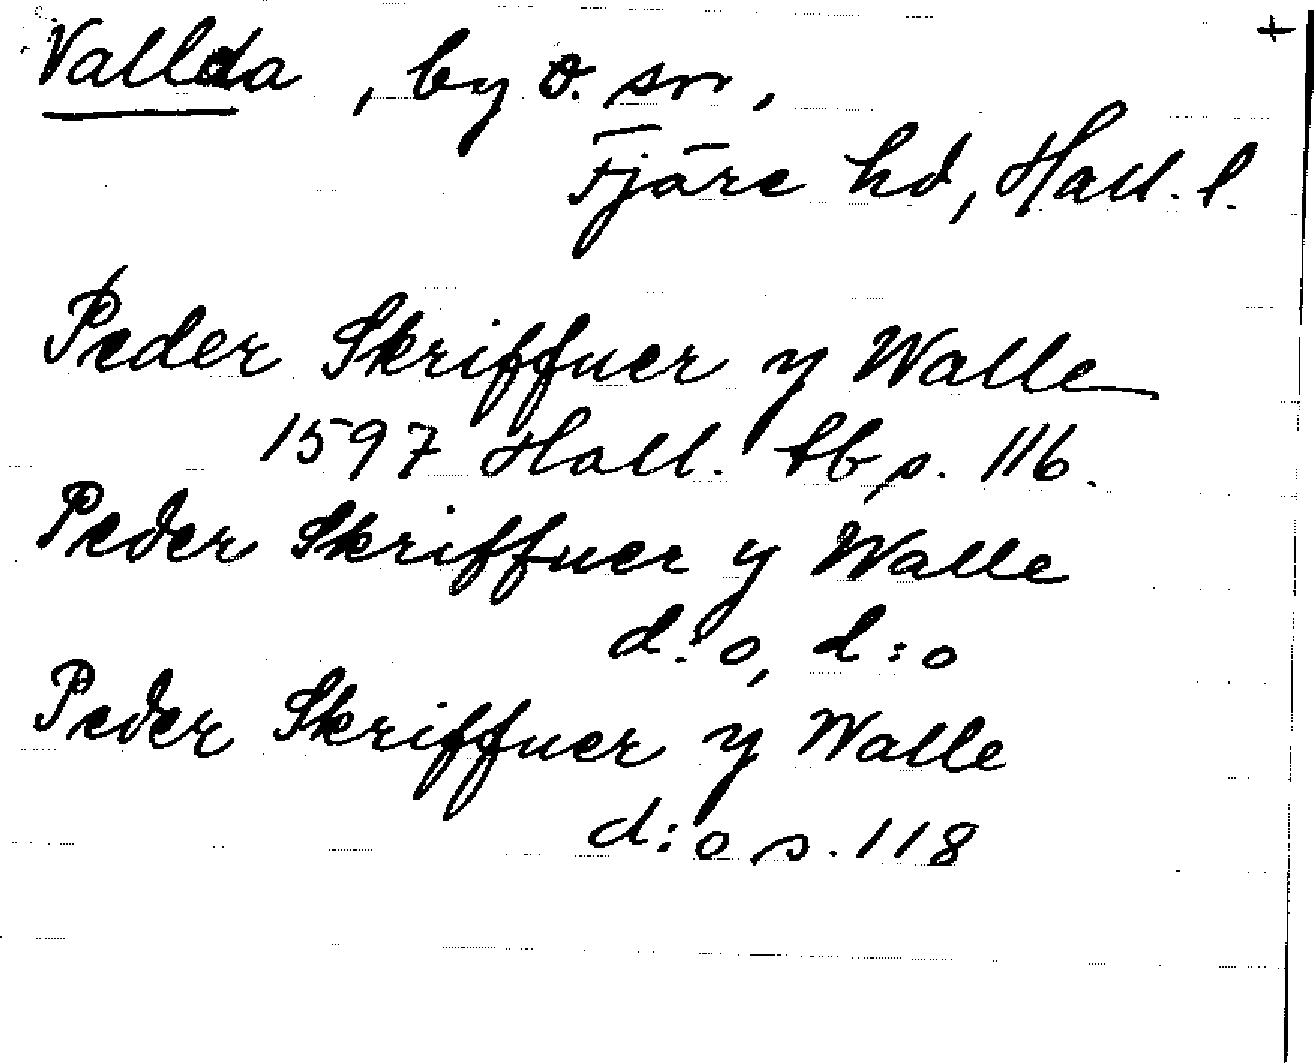 Vallda, by o. sn, +
Fjäre hd, Hall. l.
Peder Skriffuer y Walle
1597 Hall. tb s. 116.
Peder Skriffuer y Walle
d:o, d:o
Peder Skriffuer y Walle
d:o s. 118